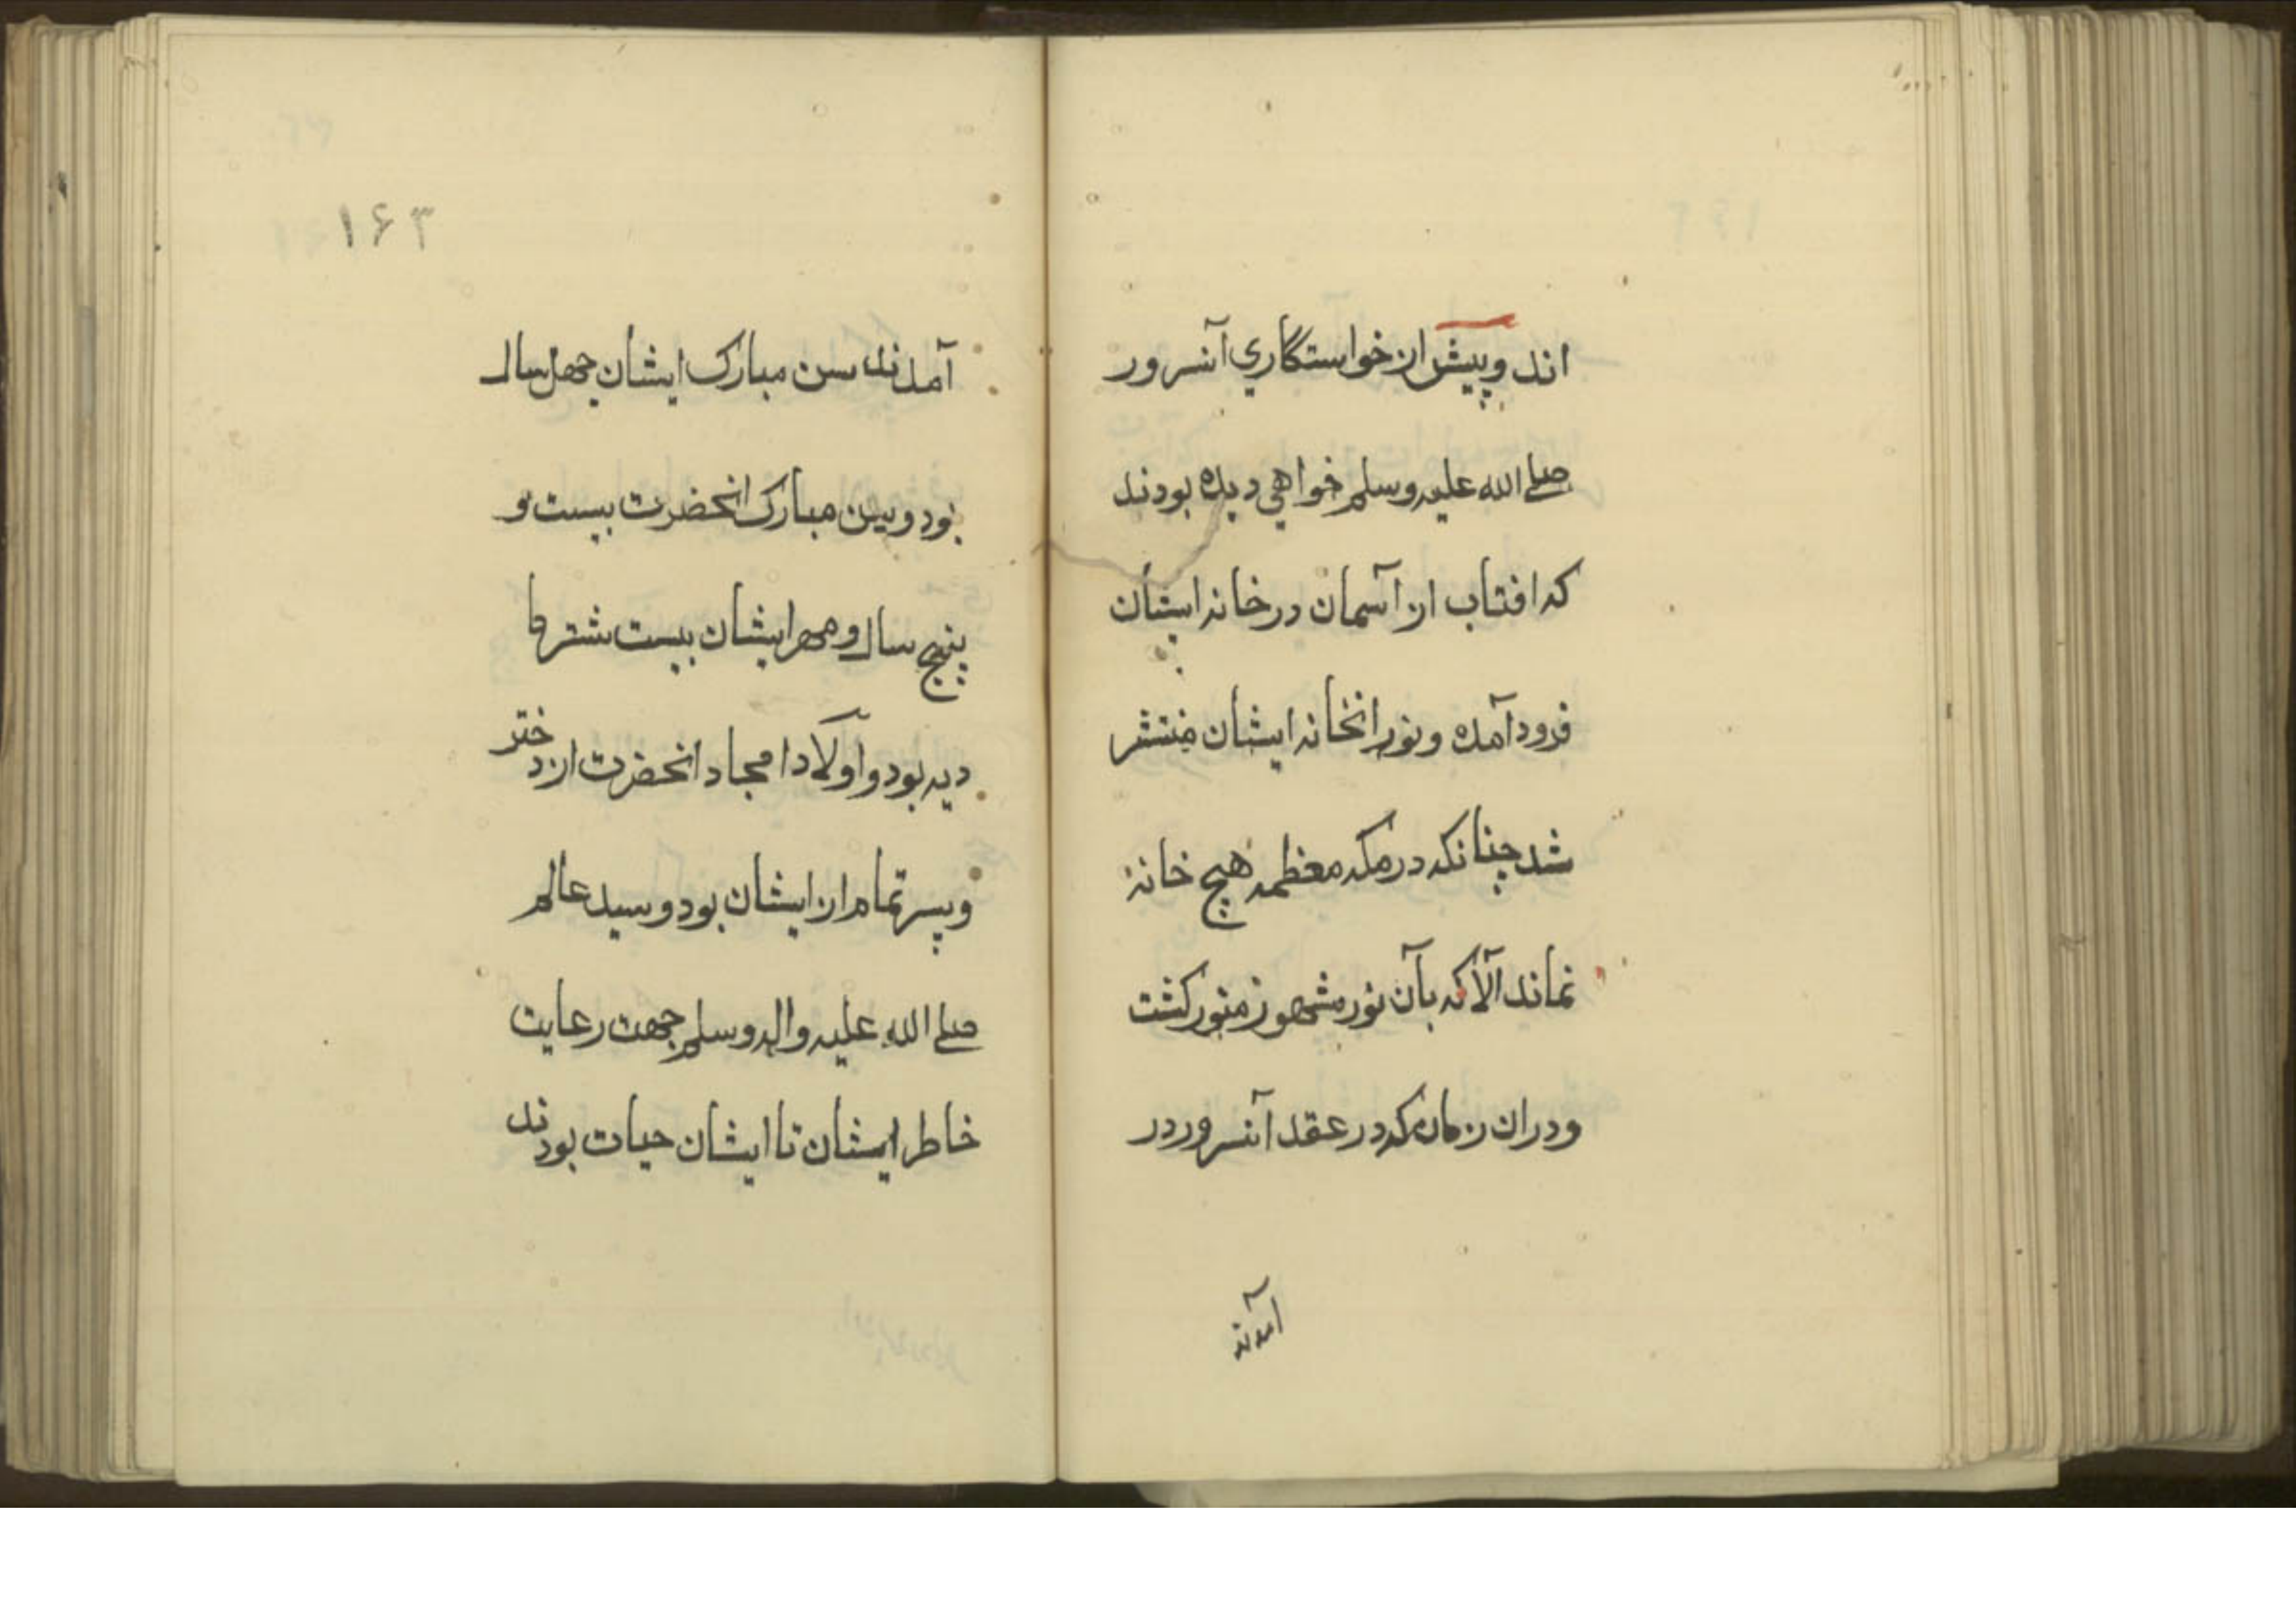 اند و پیش از خواستگاري آنسرور
صلے الله علیه وسلم خواهي دیده بودند
که افتاب از آسمان در خانه ایشان
فرود آمده و نور انخانه ایشان منتشر
شد چنانکه در مکه معظمه هیچ خانهٔ
نماند الّا که بآن نور مشهور منور کشت
و دران زمان که در عقد آنسرور در
آمدند
۱۶۳
آمدند سن مبارک ایشان چهل سال
بود و سن مبارک انحضرت بیست و
پنج سال و مهر ایشان بیست شتر ما
دیه بود و اولاد امجاد انحضرت از دختر
و پسر تمام از ایشان بود و سید عالم
صلے الله علیه واله وسلم جهت رعایت
خاطر ایشان تا ایشان حیات بودند